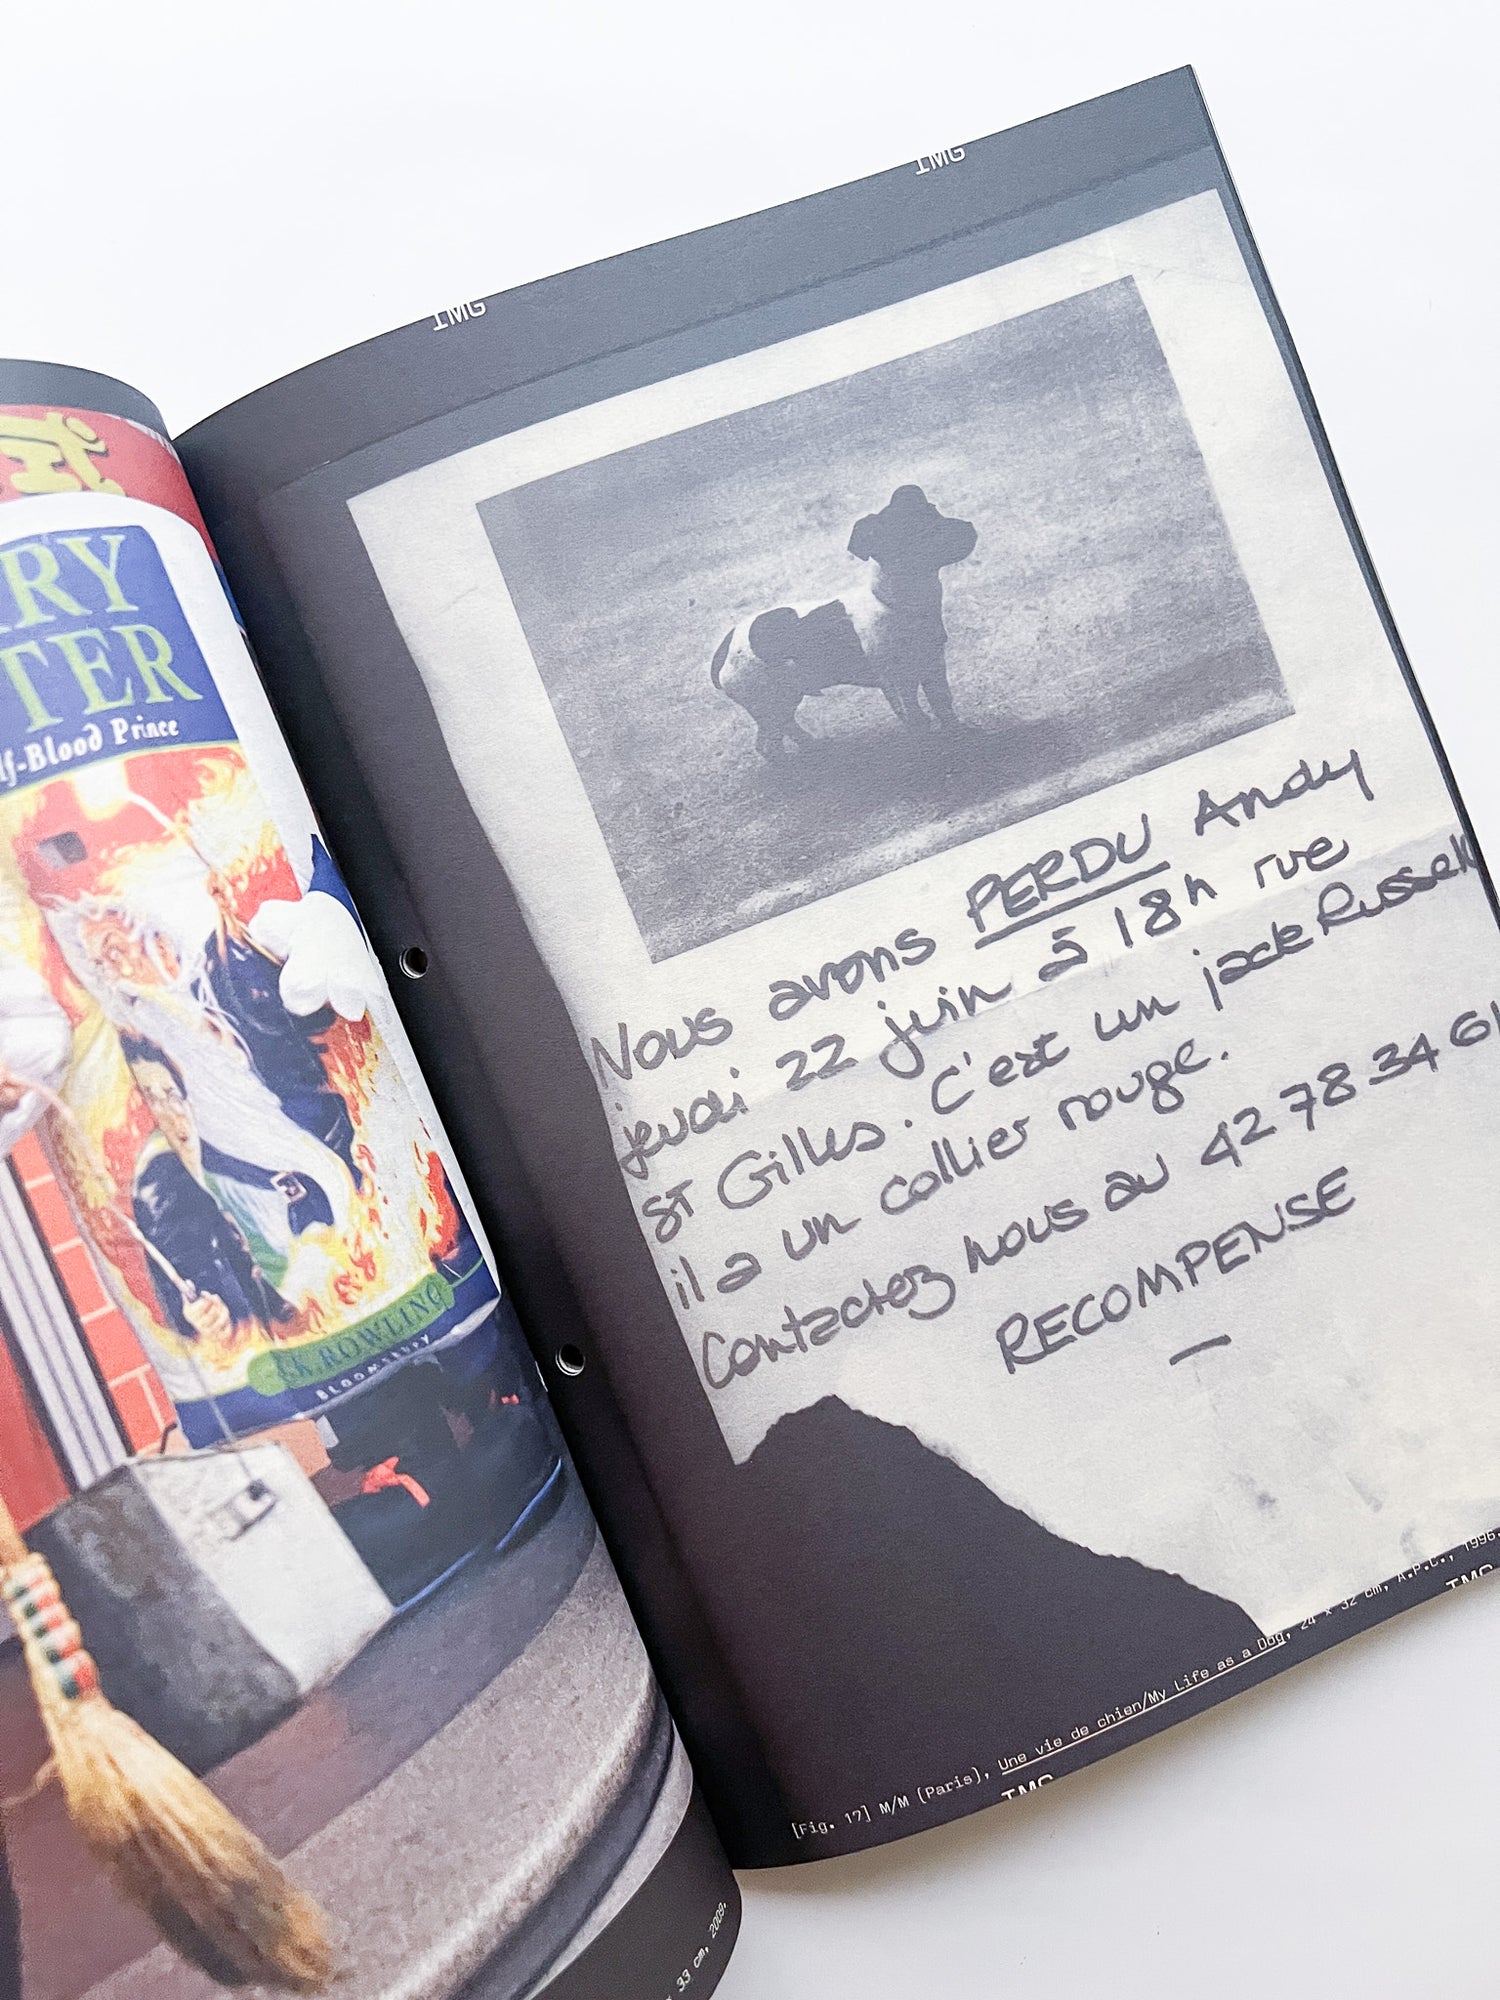 RY
TER
lf-Blood Prince
J.K. ROWLING
BLOOMSBURY
33 cm, 2009.
IMG
IMG
Nous avons PERDU Andy
jeudi 22 juin à 18h rue
St Gilles. C'est un jack Russell
il a un collier rouge.
Contactez nous au 42 78 34 61
RECOMPENSE
[Fig. 17] M/M (Paris), Une vie de chien/My Life as a Dog, 24 × 32 cm, A.P.C., 1996.
IMG
IMG